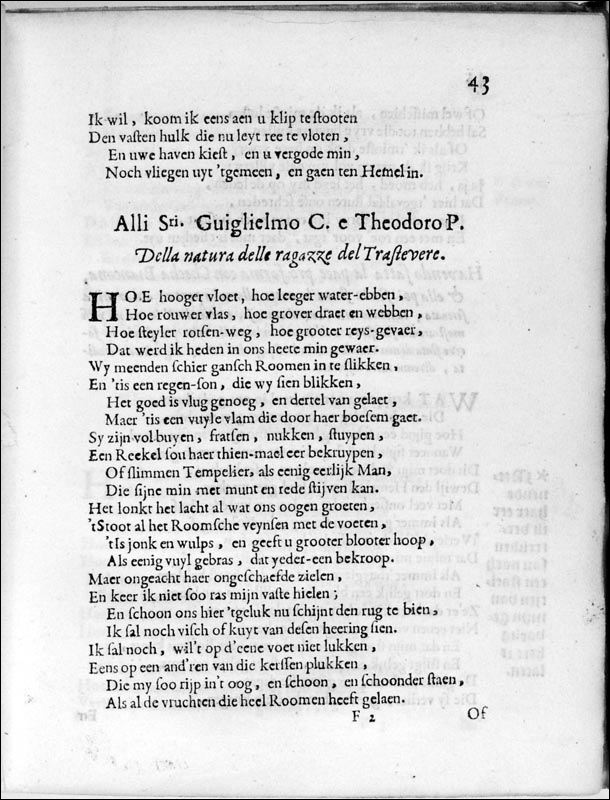 43
Ik wil, koom ik eens aen u klip te stooten
Den vasten hulk die nu leyt ree te vloten,
En uwe haven kiest, en u vergode min,
Noch vliegen uyt 'tgemeen, en gaen ten Hemel in.
Alli Sri. Guiglielmo C. e Theodoro P.
Della natura delle ragazze del Trastevere.
HOE hooger vloet, hoe leeger water-ebben,
Hoe rouwer vlas, hoe grover draet en webben,
Hoe steyler rotsen-weg, hoe grooter reys-gevaer,
Dat werd ik heden in ons heete min gewaer.
Wy meenden schier gansch Roomen in te slikken,
En 'tis een regen-son, die wy sien blikken,
Het goed is vlug genoeg, en dertel van gelaet,
Maer 'tis een vuyle vlam die door haer boesem gaet.
Sy zijn vol buyen, fratsen, nukken, stuypen,
Een Reekel sou haer thien-mael eer bekruypen,
Of slimmen Tempelier, als eenig eerlijk Man,
Die sijne min met munt en rede stijven kan.
Het lonkt het lacht al wat ons oogen groeten,
'tStoot al het Roomsche veynsen met de voeten,
'tIs jonk en wulps, en geeft u grooter blooter hoop,
Als eenig vuyl gebras, dat yeder-een bekroop.
Maer ongeacht haer ongeschaefde zielen,
En keer ik niet soo ras mijn vaste hielen;
En schoon ons hier 'tgeluk nu schijnt den rug te bien,
Ik sal noch visch of kuyt van desen heering sien.
Ik sal noch, wil't op d'eene voet niet lukken,
Eens op een and'ren van die kerssen plukken,
Die my soo rijp in't oog, en schoon, en schoonder staen,
Als al de vruchten die heel Roomen heeft gelaen.
F 2 Of